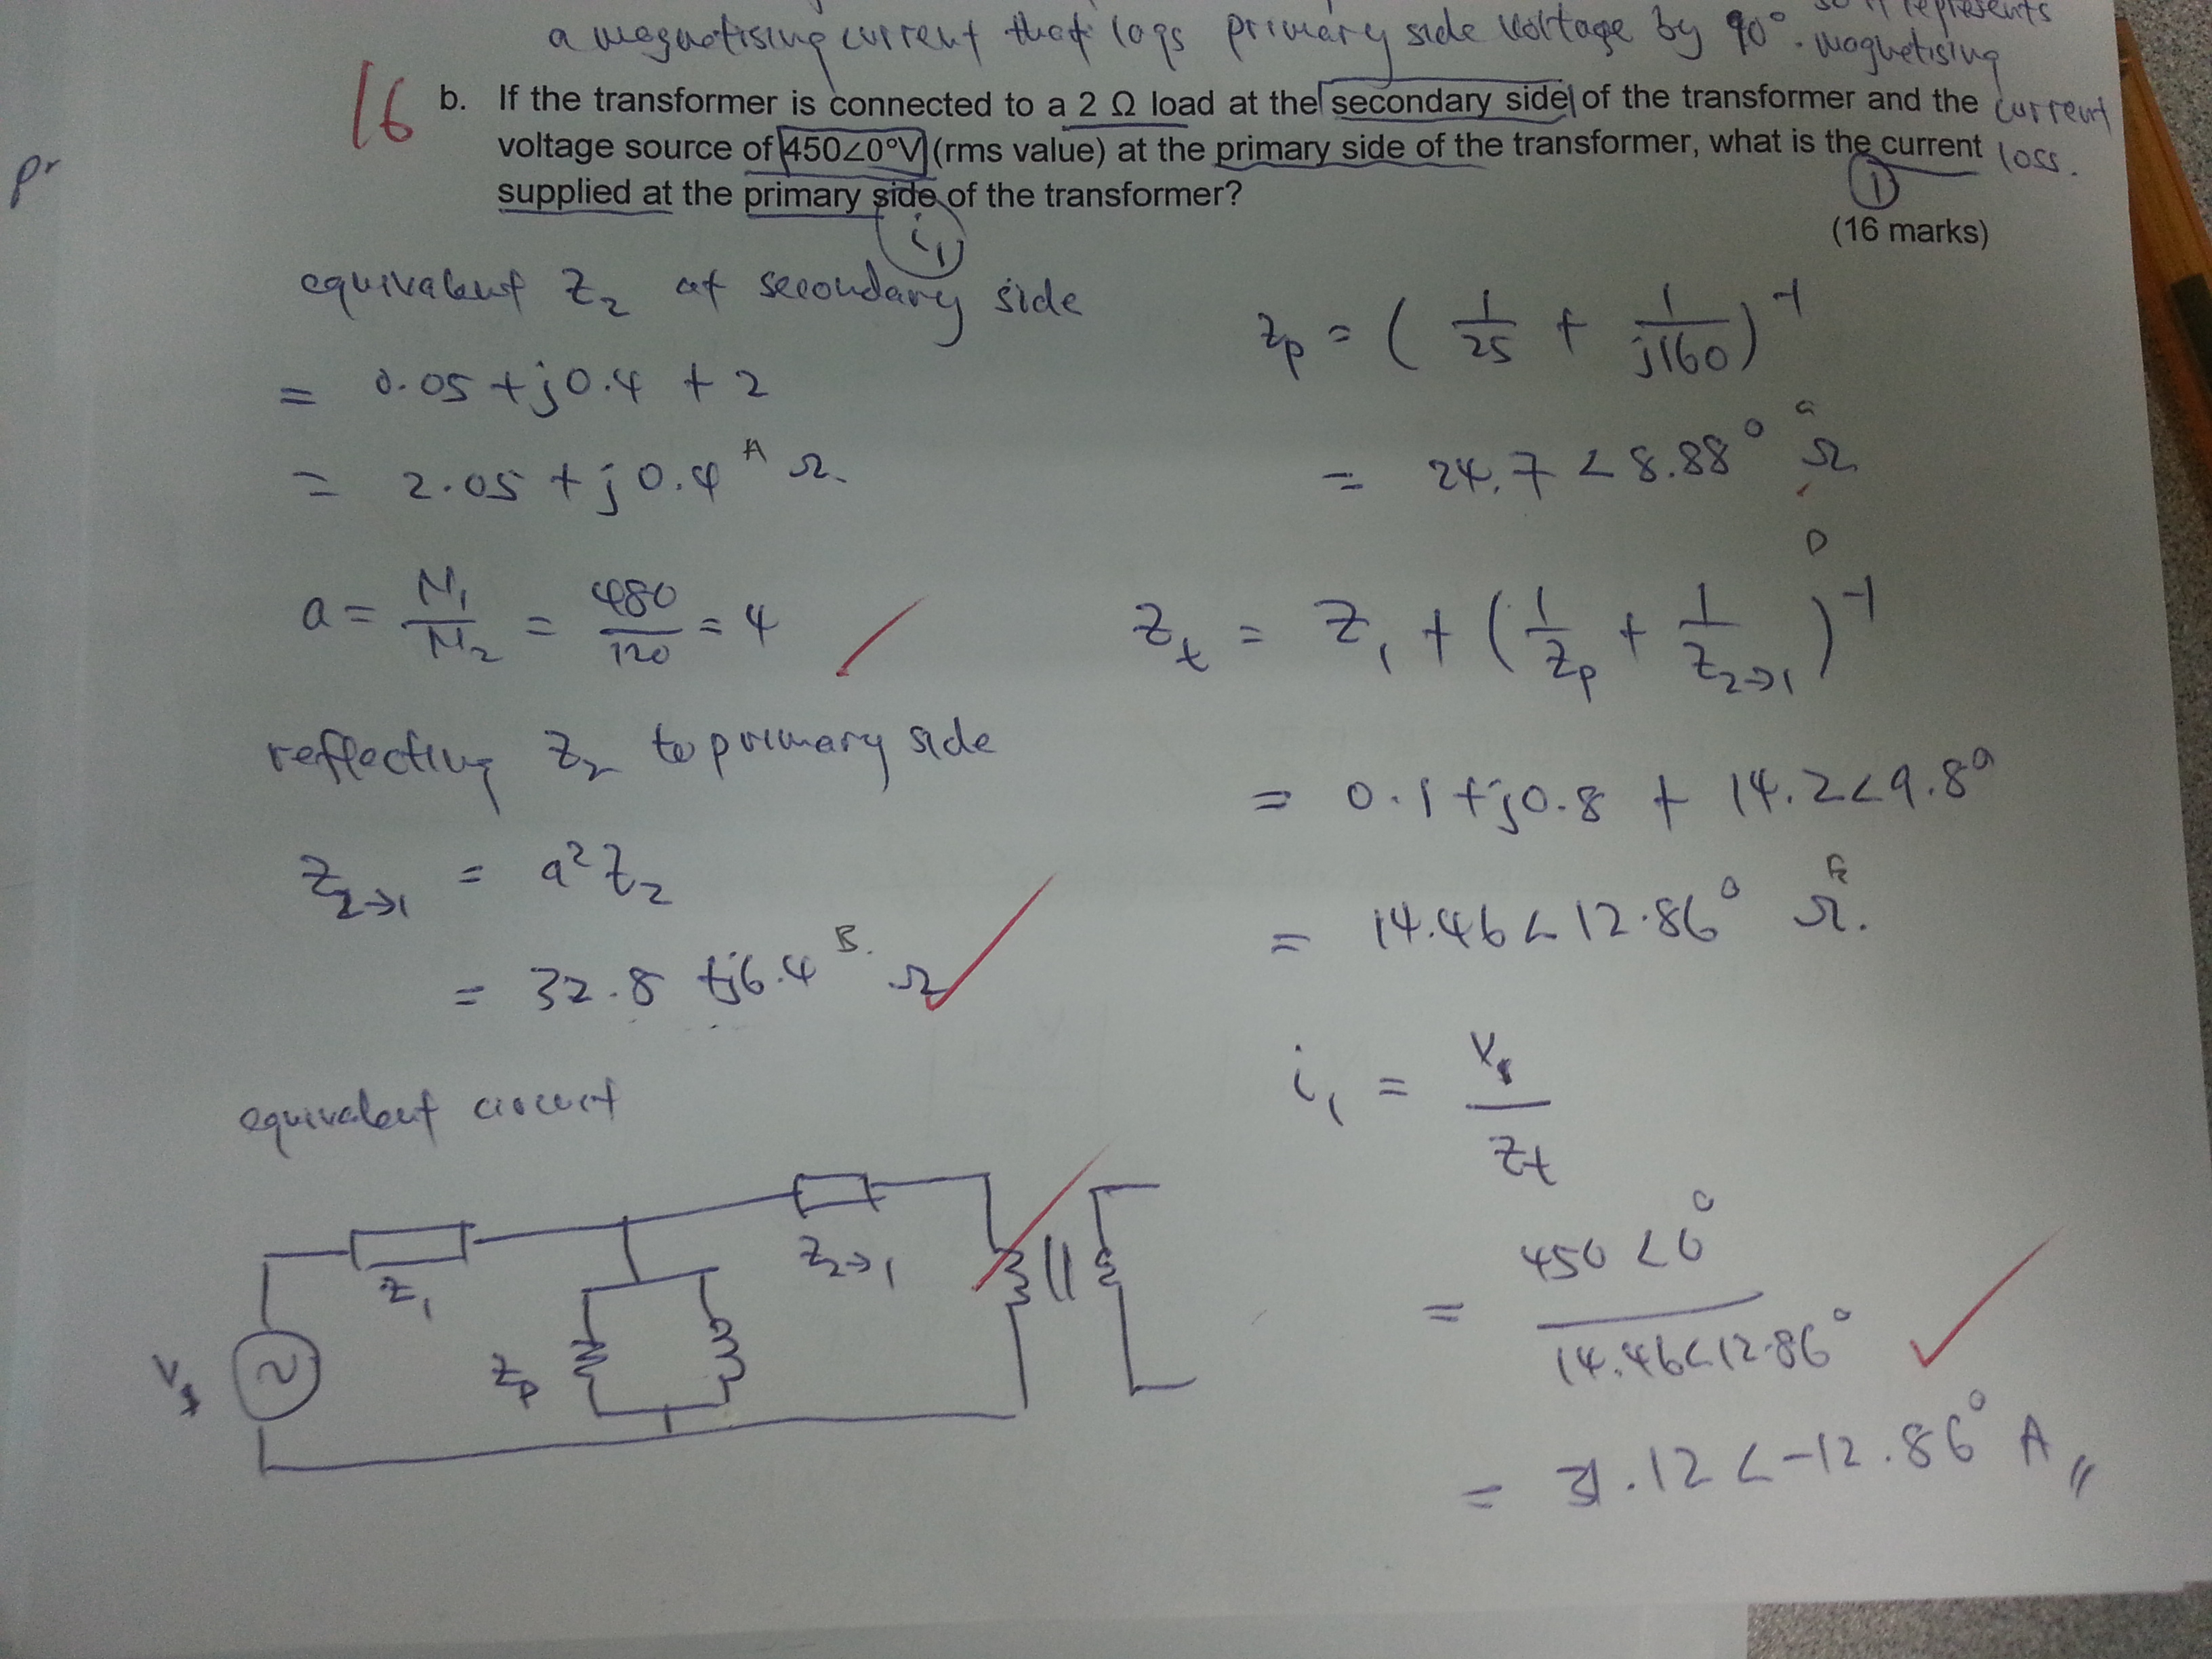 so it represents
a magnetising current that lags primary side voltage by 90°. magnetising
current
loss.
16
pr
b. If the transformer is connected to a 2 Ω load at the secondary side of the transformer and the
voltage source of 450∠0°V (rms value) at the primary side of the transformer, what is the current
supplied at the primary side of the transformer?
1
i₁
(16 marks)
equivalent Z₂ at secondary side
= 0.05 + j0.4 + 2
= 2.05 + j0.4 ᴬ Ω.
a = N₁/N₂ = 480/120 = 4
reflecting Z₂ to primary side
Z₂→₁ = a²Z₂
= 32.8 + j6.4 ᴮ· Ω
equivalent circuit
Z₁
Z₂→₁
Vs
Zp
Zp = (1/25 + 1/j160)⁻¹
= 24.7 ∠ 8.88° Ω
D
Zt = Z₁ + (1/Zp + 1/Z₂→₁)⁻¹
= 0.1 + j0.8 + 14.2∠9.8°
= 14.46 ∠ 12.86° Ω.
i₁ = Vs/Zt
= 450∠0°/14.46∠12.86°
= 31.12 ∠ -12.86° A //